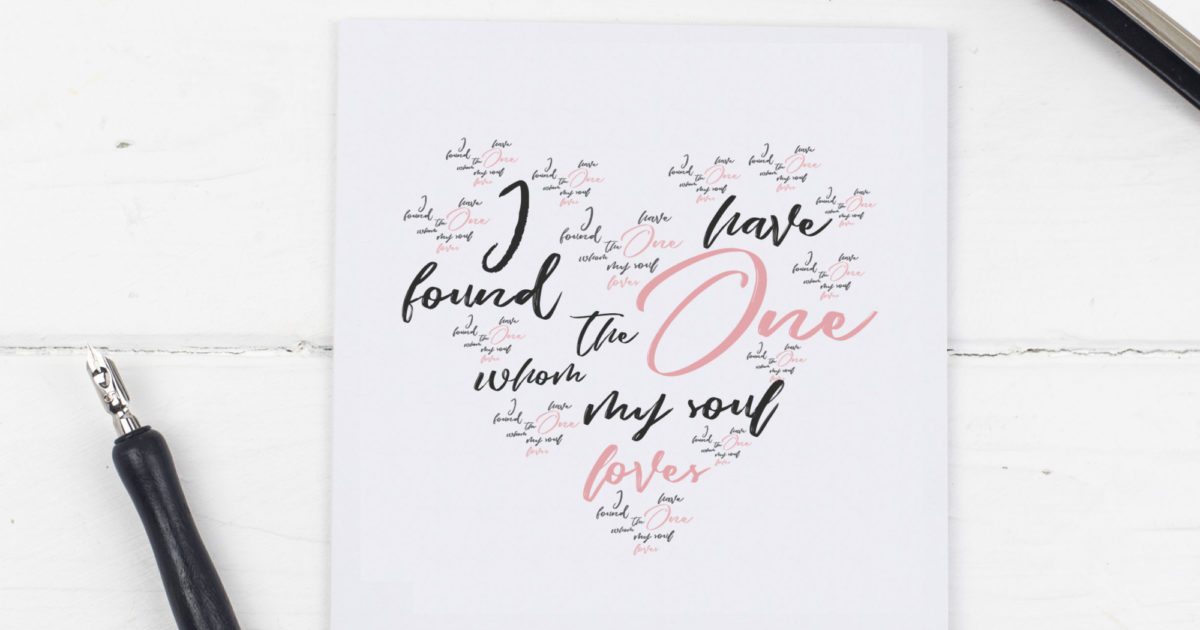 I have
found the One
whom my soul
loves
I have
found the One
whom my soul
loves
I have
found the One
whom my soul
loves
I have
found the One
whom my soul
loves
I have
found the One
whom my soul
loves
I have
found the One
whom my soul
loves
I have
found the One
whom my soul
loves
I have
found the One
whom my soul
loves
I have
found the One
whom my soul
loves
I have
found the One
whom my soul
loves
I have
found the One
whom my soul
loves
I have
found the One
whom my soul
loves
I have
found the One
whom my soul
loves
I have
found the One
whom my soul
loves